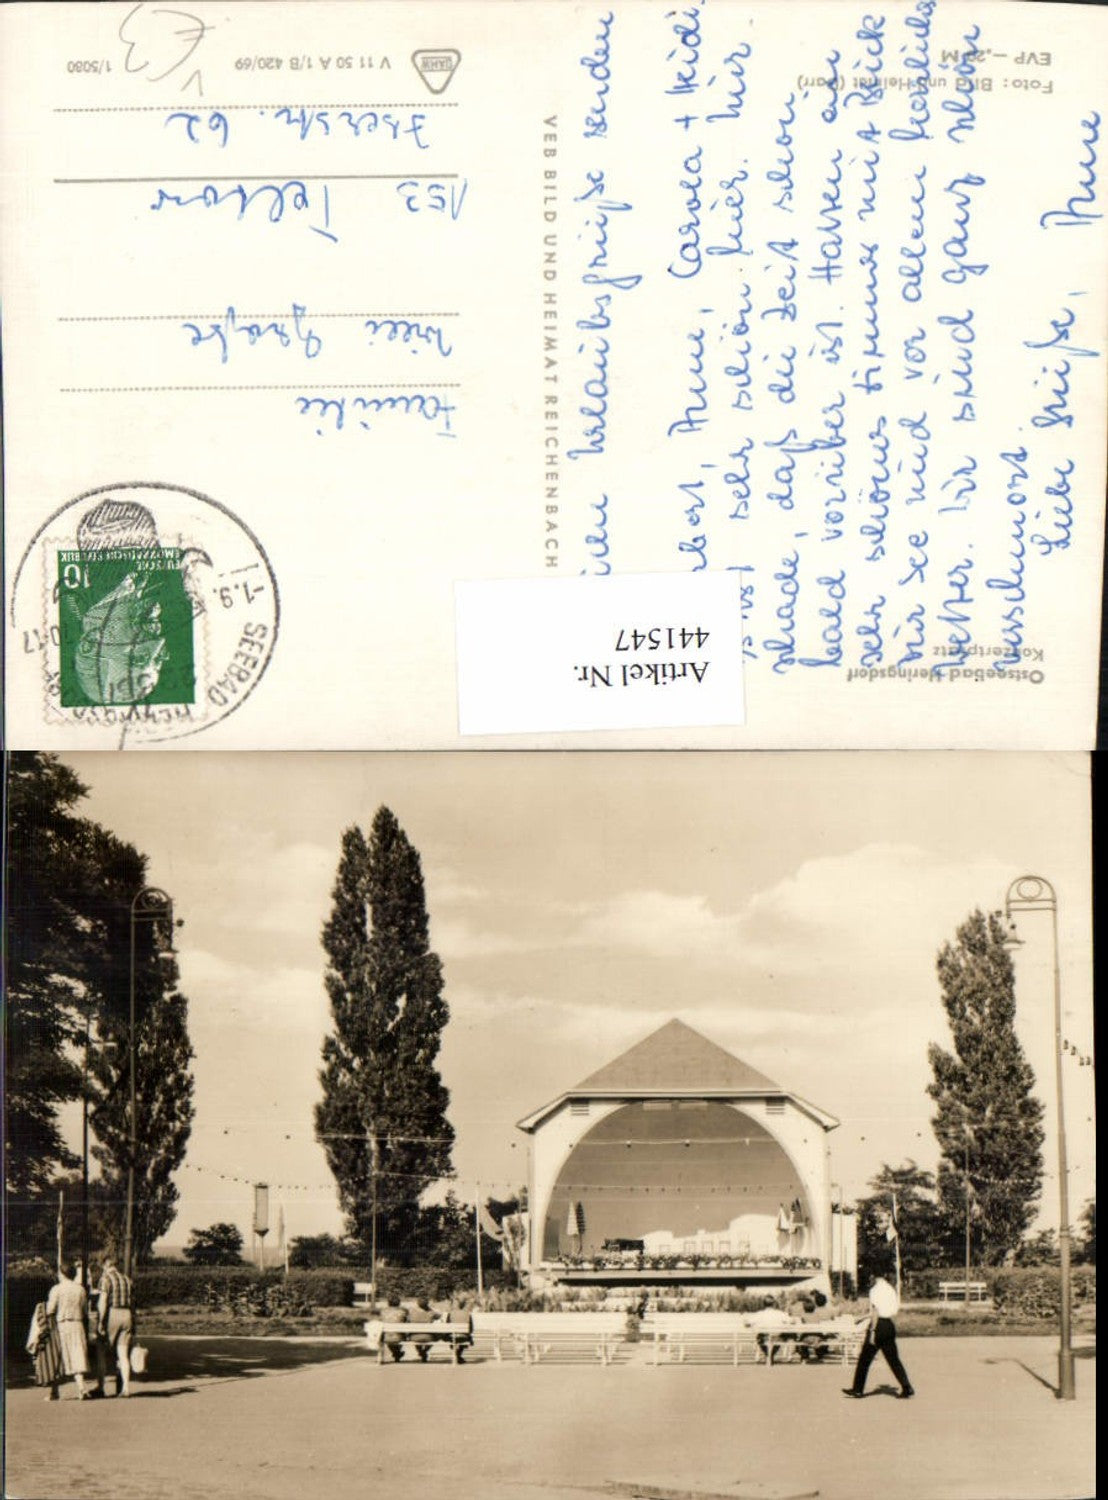 Ostseebad Heringsdorf
Konzertplatz
Foto: Bild und Heimat (Darr)
EVP —,20 M
VEB BILD UND HEIMAT REICHENBACH
V 11 50 A 1/B 420/69
1/5080
Artikel Nr.
441547
Urlaubsgrüße senden
Anne, Carola + Heidi.
sehr schön hier. Nur
schade, daß die Zeit schon
bald vorüber ist. Hatten ein
sehr schönes Zimmer mit Blick
zur See und vor allem herrliches
Wetter. Wir sind ganz schön
verschmort.
Liebe Grüße, Anne
Familie
Willi Große
153 Teltow
Iserstr. 62
DEUTSCHE
DEMOKRATISCHE REPUBLIK
10
SEEBAD
-1.9.
-17
€3